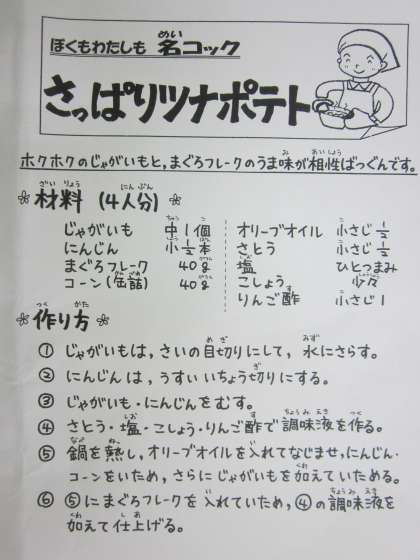 ぼくもわたしも 名コック
さっぱりツナポテト
ホクホクのじゃがいもと,まぐろフレークのうま味が相性ばっぐんです。
材料 (4人分)
じゃがいも 中1個
にんじん 小1/2本
まぐろフレーク 40g
コーン(缶詰) 40g
オリーブオイル 小さじ1/2
さとう 小さじ1/2
塩 ひとつまみ
こしょう 少々
りんご酢 小さじ1
作り方
① じゃがいもは,さいの目切りにして,水にさらす。
② にんじんは,うすいいちょう切りにする。
③ じゃがいも・にんじんをむす。
④ さとう・塩・こしょう・りんご酢で調味液を作る。
⑤ 鍋を熱し,オリーブオイルを入れてなじませ,にんじん・
コーンをいため,さらにじゃがいもを加えていためる。
⑥ ⑤にまぐろフレークを入れていため,④の調味液を
加えて仕上げる。